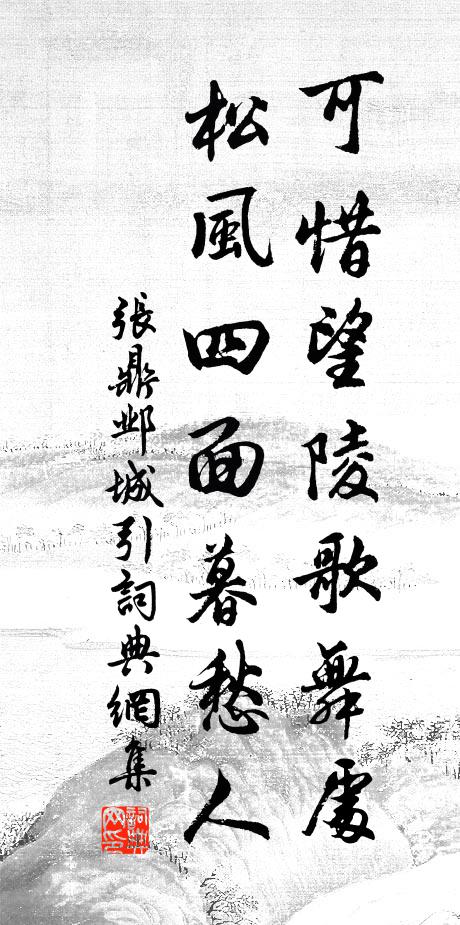 可惜望陵歌舞處
松風四面暮愁人
張鼎鄴城引詞典網集